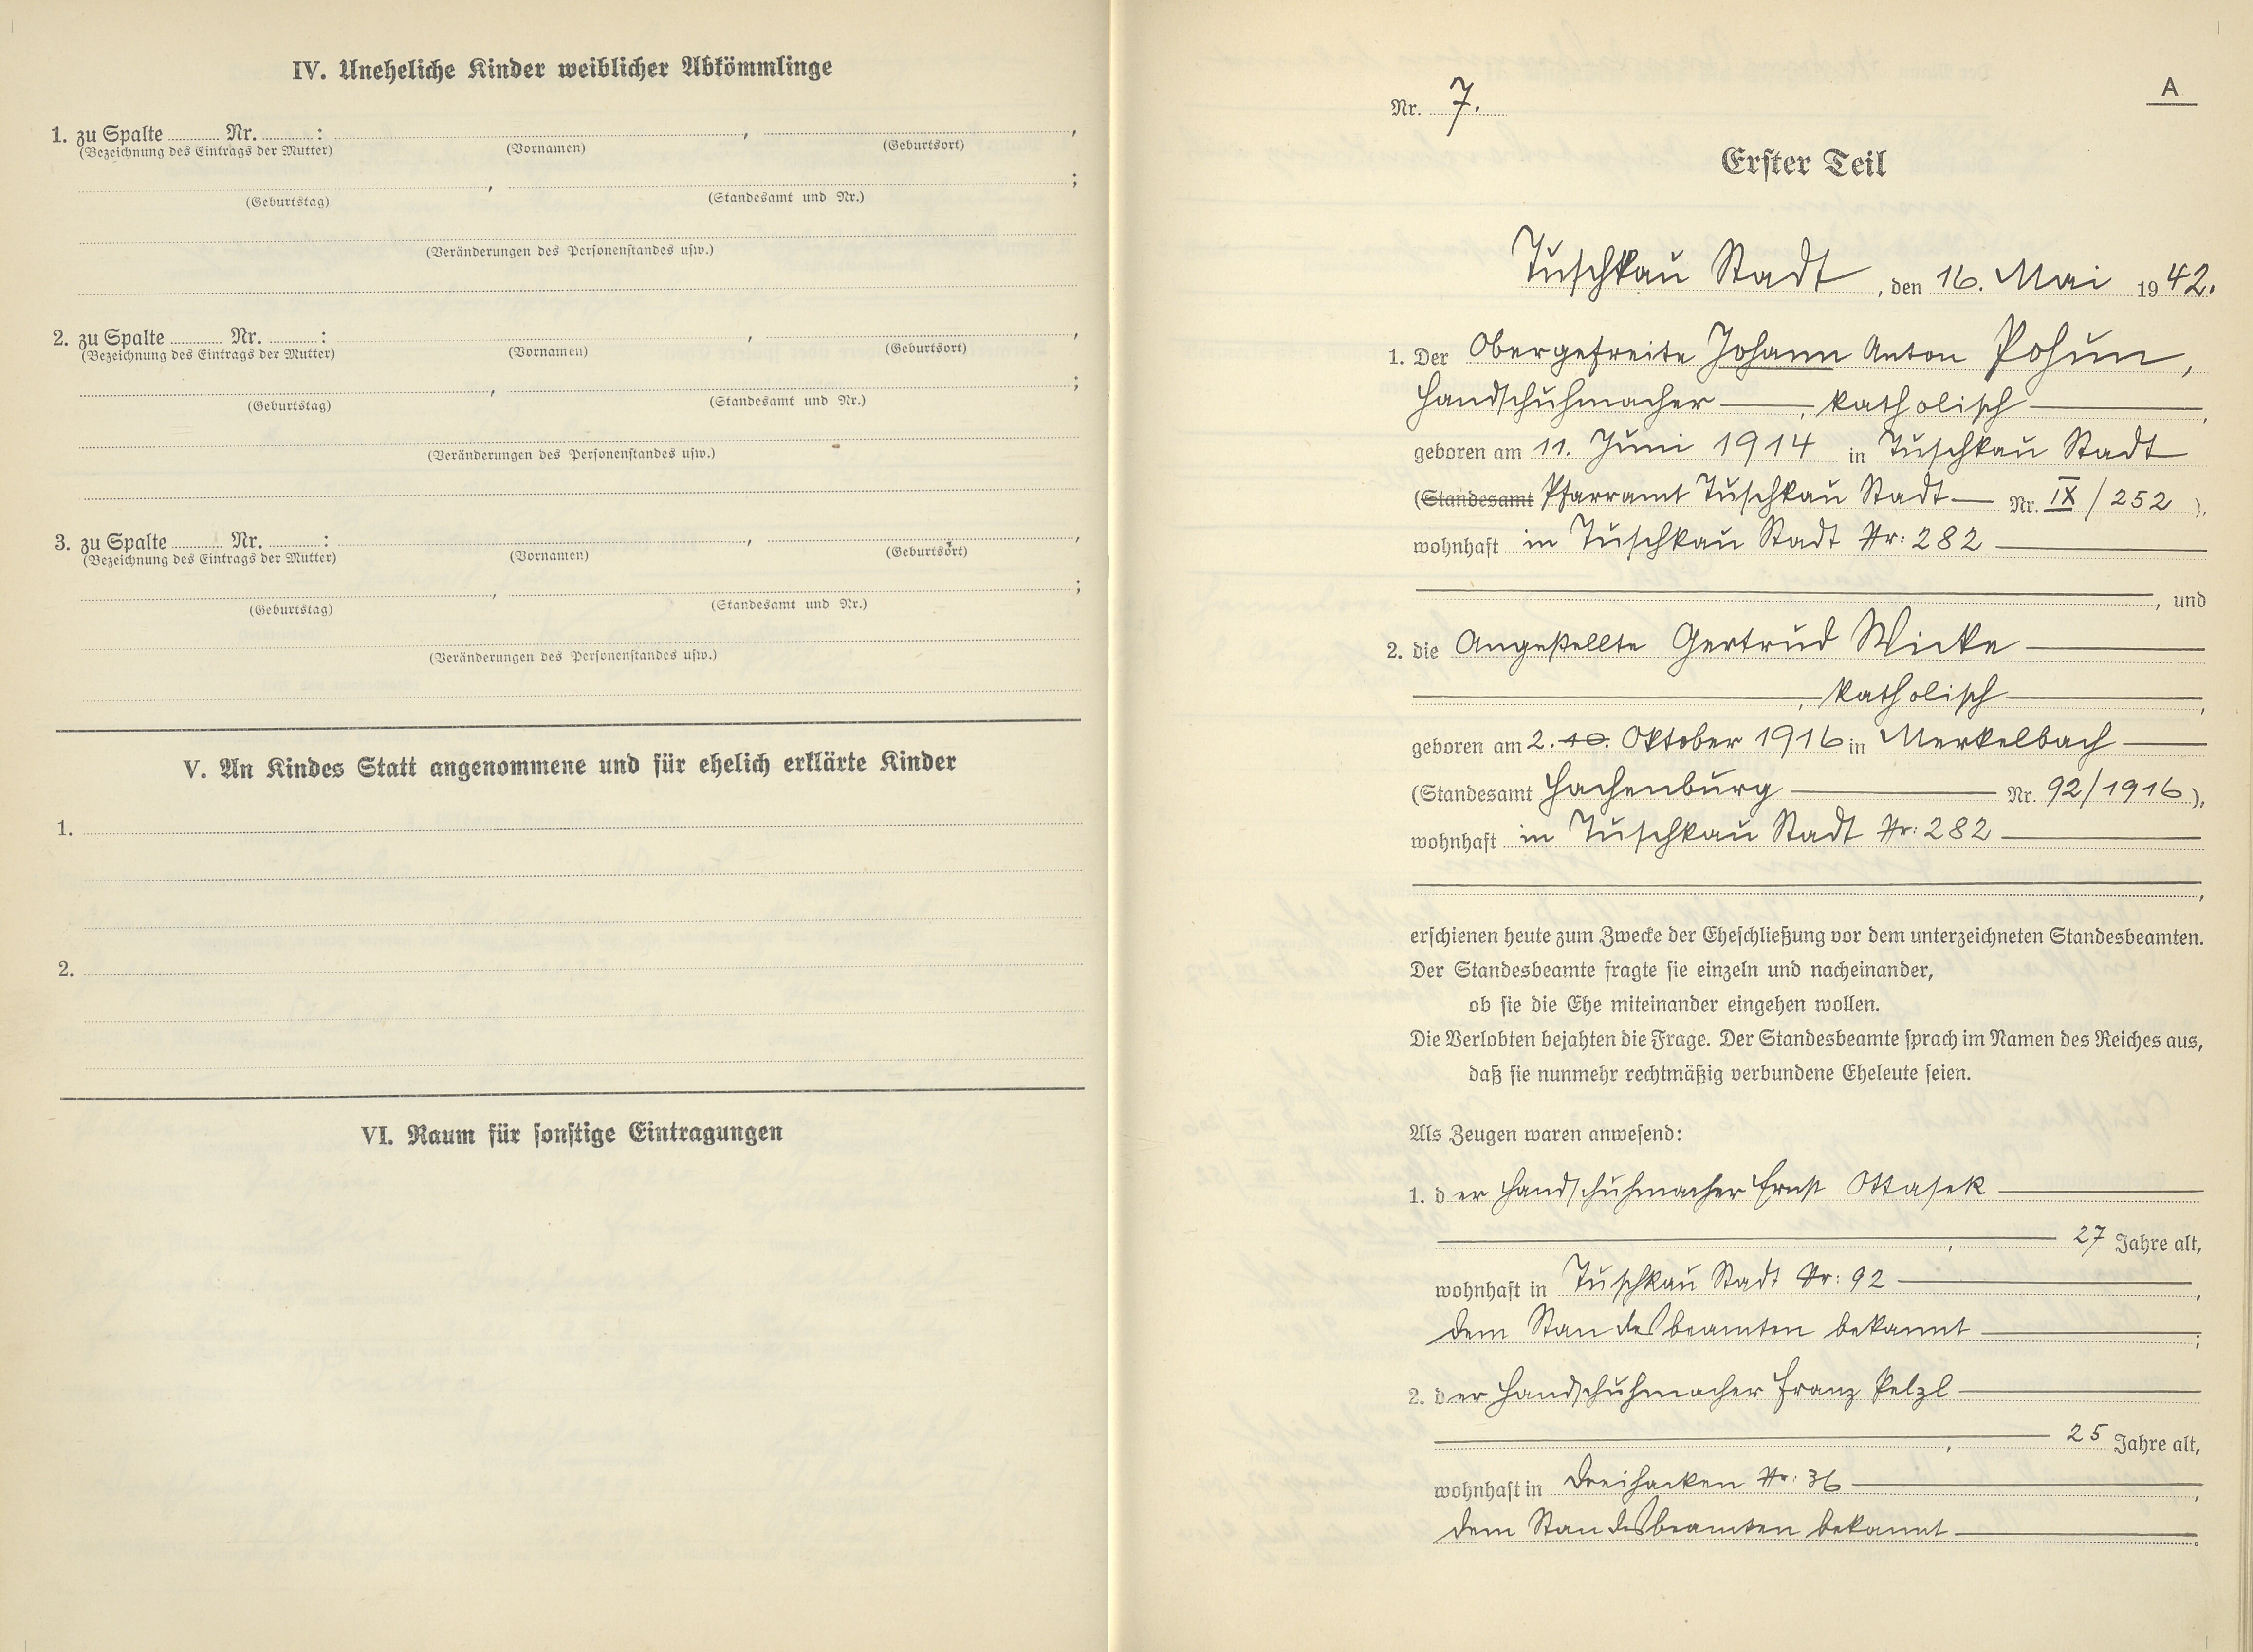 IV. Uneheliche Kinder weiblicher Abkömmlinge
1. zu Spalte ............ Nr. ............ : , ,
(Bezeichnung des Eintrags der Mutter) (Vornamen) (Geburtsort)
, ;
(Geburtstag) (Standesamt und Nr.)
(Veränderungen des Personenstandes usw.)
2. zu Spalte ............ Nr. ............ : , ,
(Bezeichnung des Eintrags der Mutter) (Vornamen) (Geburtsort)
, ;
(Geburtstag) (Standesamt und Nr.)
(Veränderungen des Personenstandes usw.)
3. zu Spalte ............ Nr. ............ : , ,
(Bezeichnung des Eintrags der Mutter) (Vornamen) (Geburtsort)
, ;
(Geburtstag) (Standesamt und Nr.)
(Veränderungen des Personenstandes usw.)
V. An Kindes Statt angenommene und für ehelich erklärte Kinder
1.
2.
VI. Raum für sonstige Eintragungen
A
Nr. 7.
Erster Teil
Tuschkau Stadt, den 16. Mai 1942.
1. Der Obergefreite Johann Anton Pohun,
Handschuhmacher, katholisch,
geboren am 11. Juni 1914 in Tuschkau Stadt
(Standesamt Pfarramt Tuschkau Stadt Nr. IX / 252 ),
wohnhaft in Tuschkau Stadt Nr: 282
, und
2. die Angestellte Gertrud Wicke
, katholisch,
geboren am 2. 10. Oktober 1916 in Merkelbach
(Standesamt Hachenburg Nr. 92/1916),
wohnhaft in Tuschkau Stadt Nr: 282
,
erschienen heute zum Zwecke der Eheschließung vor dem unterzeichneten Standesbeamten.
Der Standesbeamte fragte sie einzeln und nacheinander,
ob sie die Ehe miteinander eingehen wollen.
Die Verlobten bejahten die Frage. Der Standesbeamte sprach im Namen des Reiches aus,
daß sie nunmehr rechtmäßig verbundene Eheleute seien.
Als Zeugen waren anwesend:
1. der Handschuhmacher Ernst Ottasek
, 27 Jahre alt,
wohnhaft in Tuschkau Stadt Nr: 92,
dem Standesbeamten bekannt;
2. der Handschuhmacher Franz Pelzl
, 25 Jahre alt,
wohnhaft in Dreihacken Nr: 36,
dem Standesbeamten bekannt.